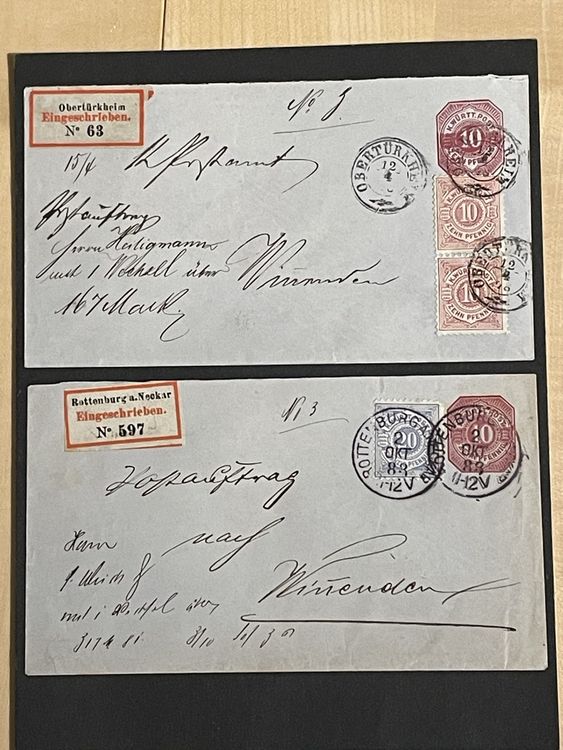 Obertürkheim
Eingeschrieben.
Nº 63
No 3
15/4 K Postamt
Postauftrag
Herrn Heiligmann
mit 1 Wechsel über Winnenden
167 Mark
OBERTÜRKHEIM
12
4
K. WÜRTT. POST
10
ZEHN PFENNIG
10
ZEHN PFENNIG
10
ZEHN PFENNIG
Rottenburg a. Neckar
Eingeschrieben.
Nº 597
No 3
Postauftrag
nach
Winnenden
Herrn
mit 1 Wechsel über
ROTTENBURG
2
OKT
83
11-12V
20
ROTTENBURG
2
OKT
83
11-12V